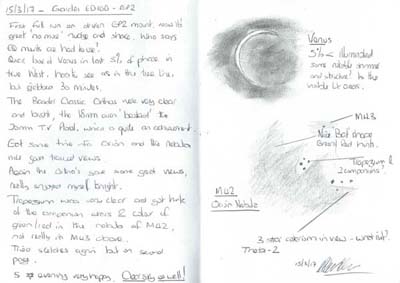 15/3/17 - Gardar ED100 - GP2
First full run on driven GP2 mount, now it's
great 'no mess' nudge and shine. Who says
EQ mounts are hard to use!
Once found Venus in last 5% of phase in
the West. hard to see as in the tree line,
but gotten 30 minutes.
The Baader Classic Orthos were very clear
and bright, the 18mm even 'bested' the
18mm TV Plossl, which is quite an achievement.
Got some time for Orion and the nebula
nice scan toured views
Again the Ortho's gave some great views,
really snapper myself bright.
Trapezium was very clear and got hints
of the companion stars & color if
green/red in the nebula of M42,
not really in M43 above.
Two sketches again but on second
post.
5 * evening very happy. Clear sky as well!
Venus
5% illuminated
some notable shimmer
and structure! In the
visible lit areas.
M43
Nice Bat shape
Green/red hints.
Trapezium &
2 companions!
M42
Orion Nebula
3 star asterism in view - what is it?
Theta-2
15/3/17